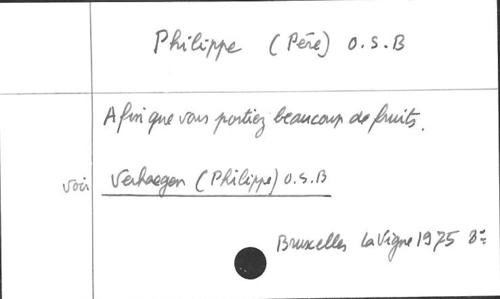 Philippe (Père) O.S.B
Afin que vous portiez beaucoup de fruits.
voir Verhaegen (Philippe) O.S.B
Bruxelles La Vigne 1975 8º